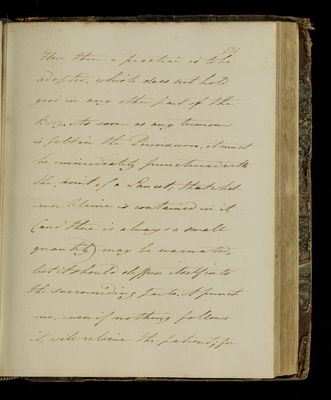 Here then a practice is to be
adopted, which does not hold
good in any other part of the
Body. As soon as any tumour
is felt in the Perineum, it must
be immediately punctured with
the point of a Lancet, that what
ever Urine is contained in it
(and there is always a small
quantity) may be evacuated,
lest it should diffuse itself into
the surrounding parts. A punct
ure, even if nothing follows
it, will relieve the patient, for